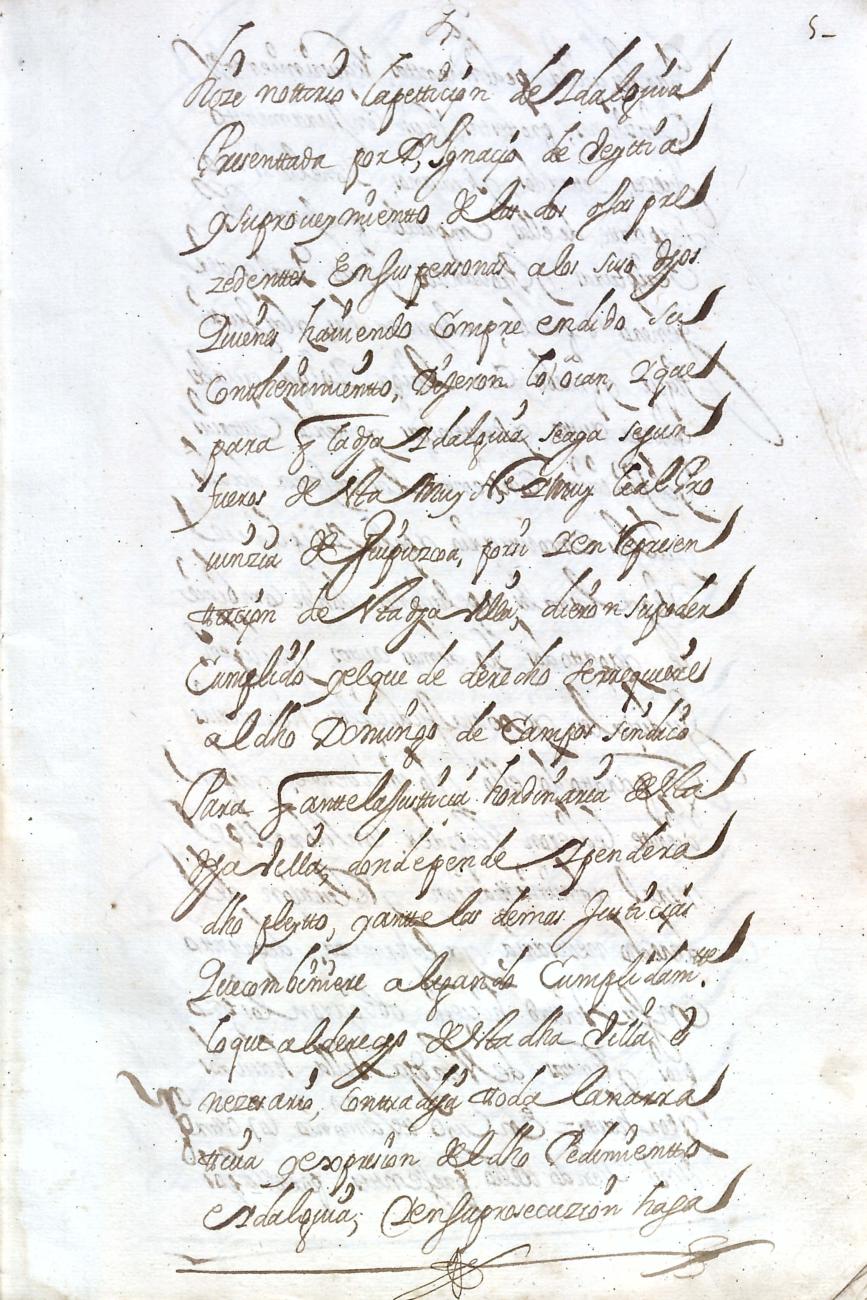 5_
hize nottorio la pettición de Ydalguia
Presenttada por Dn Ygnacio de Veyttia
y su proveymientto de las dos ojas pre
zedenttes En sus personas a los suso dhos
Quienes haviendo Compreendido su
Conthenimientto, Dijeron lo oian, Y que
para q la dha Ydalguia se aga segun
fueros de Esta Muy N.e Y muy Leal Pro
uinzia de Guipuzcoa, por si Y en Represen
ttación de Esta dha Villa, dieron su poder
Cumplido y el que de derecho se rrequiere
al dho Domingo de Campos sindico
Para q antte la Justticia hordinaria de Esta
dha Villa, donde pende Y pendera
dho pleytto, y antte las demas Justicias
Que combiniere alegando Cumplidam.tte
lo que al derecho de Esta dha Villa es
nezesario, Contradiga ttoda la narra
ttiva y expresion del dho Pedimientto
e Ydalguia; Y en su prosecuzion haga